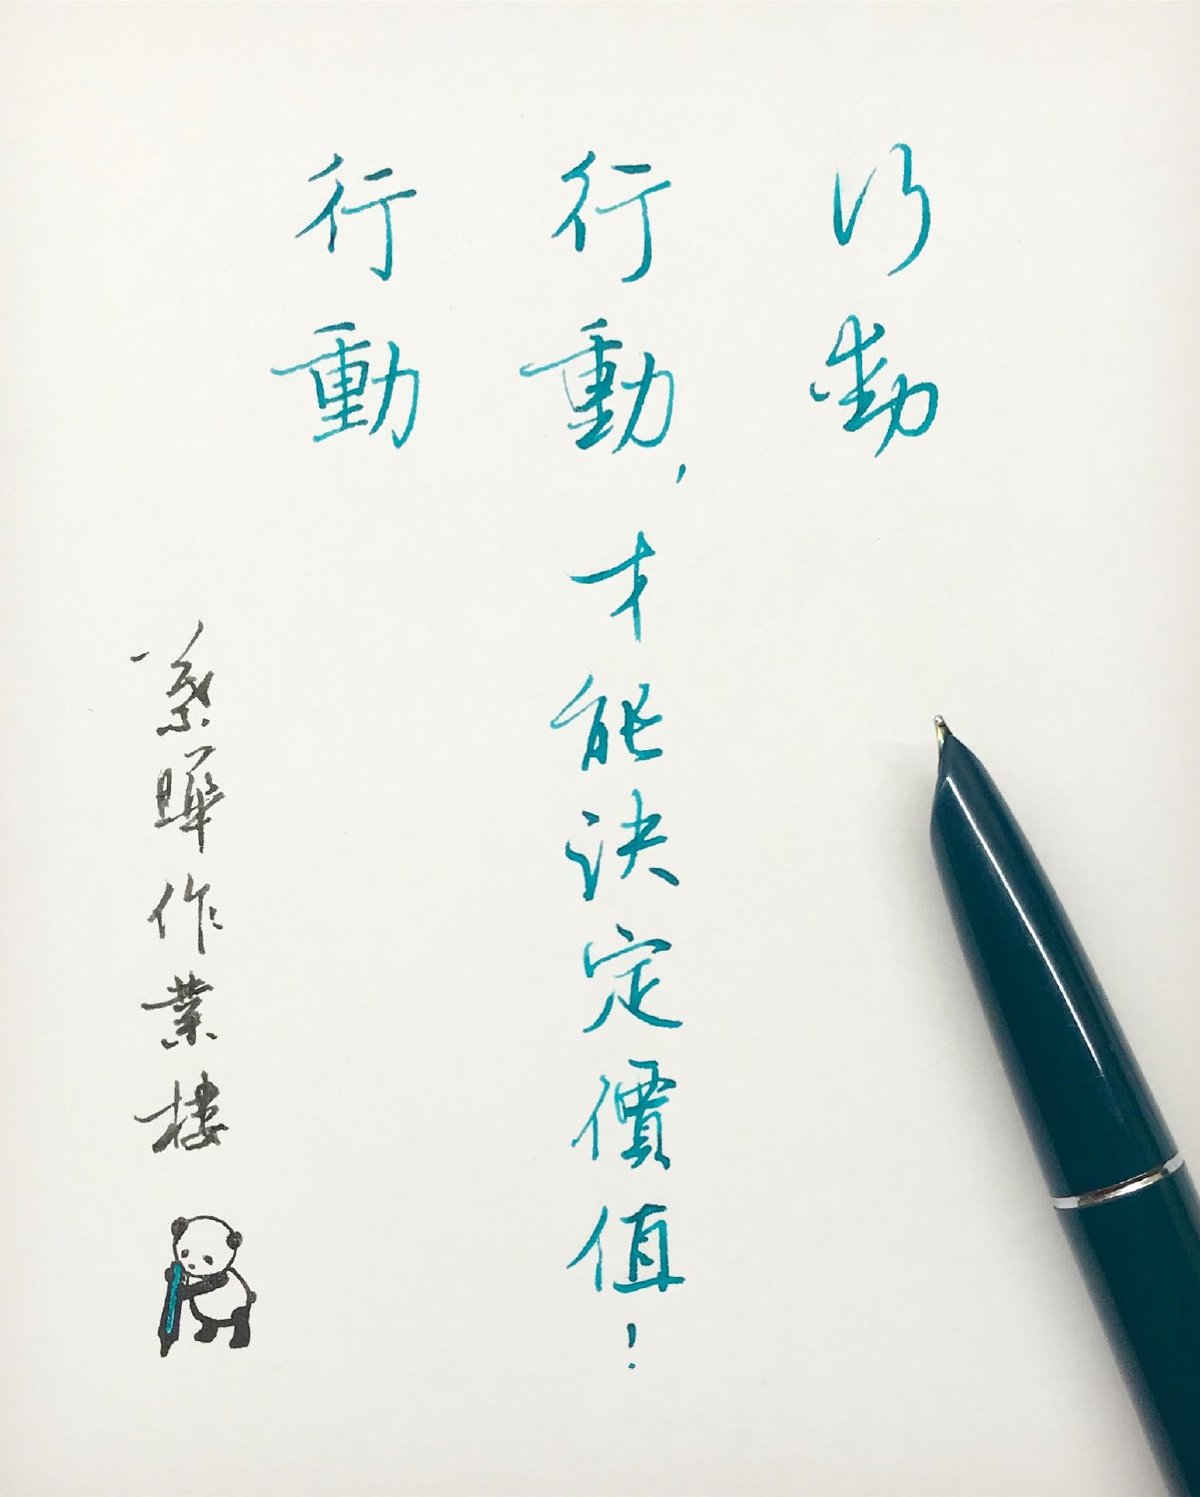 行動
行動,才能決定價值!
行動
曄作業樓